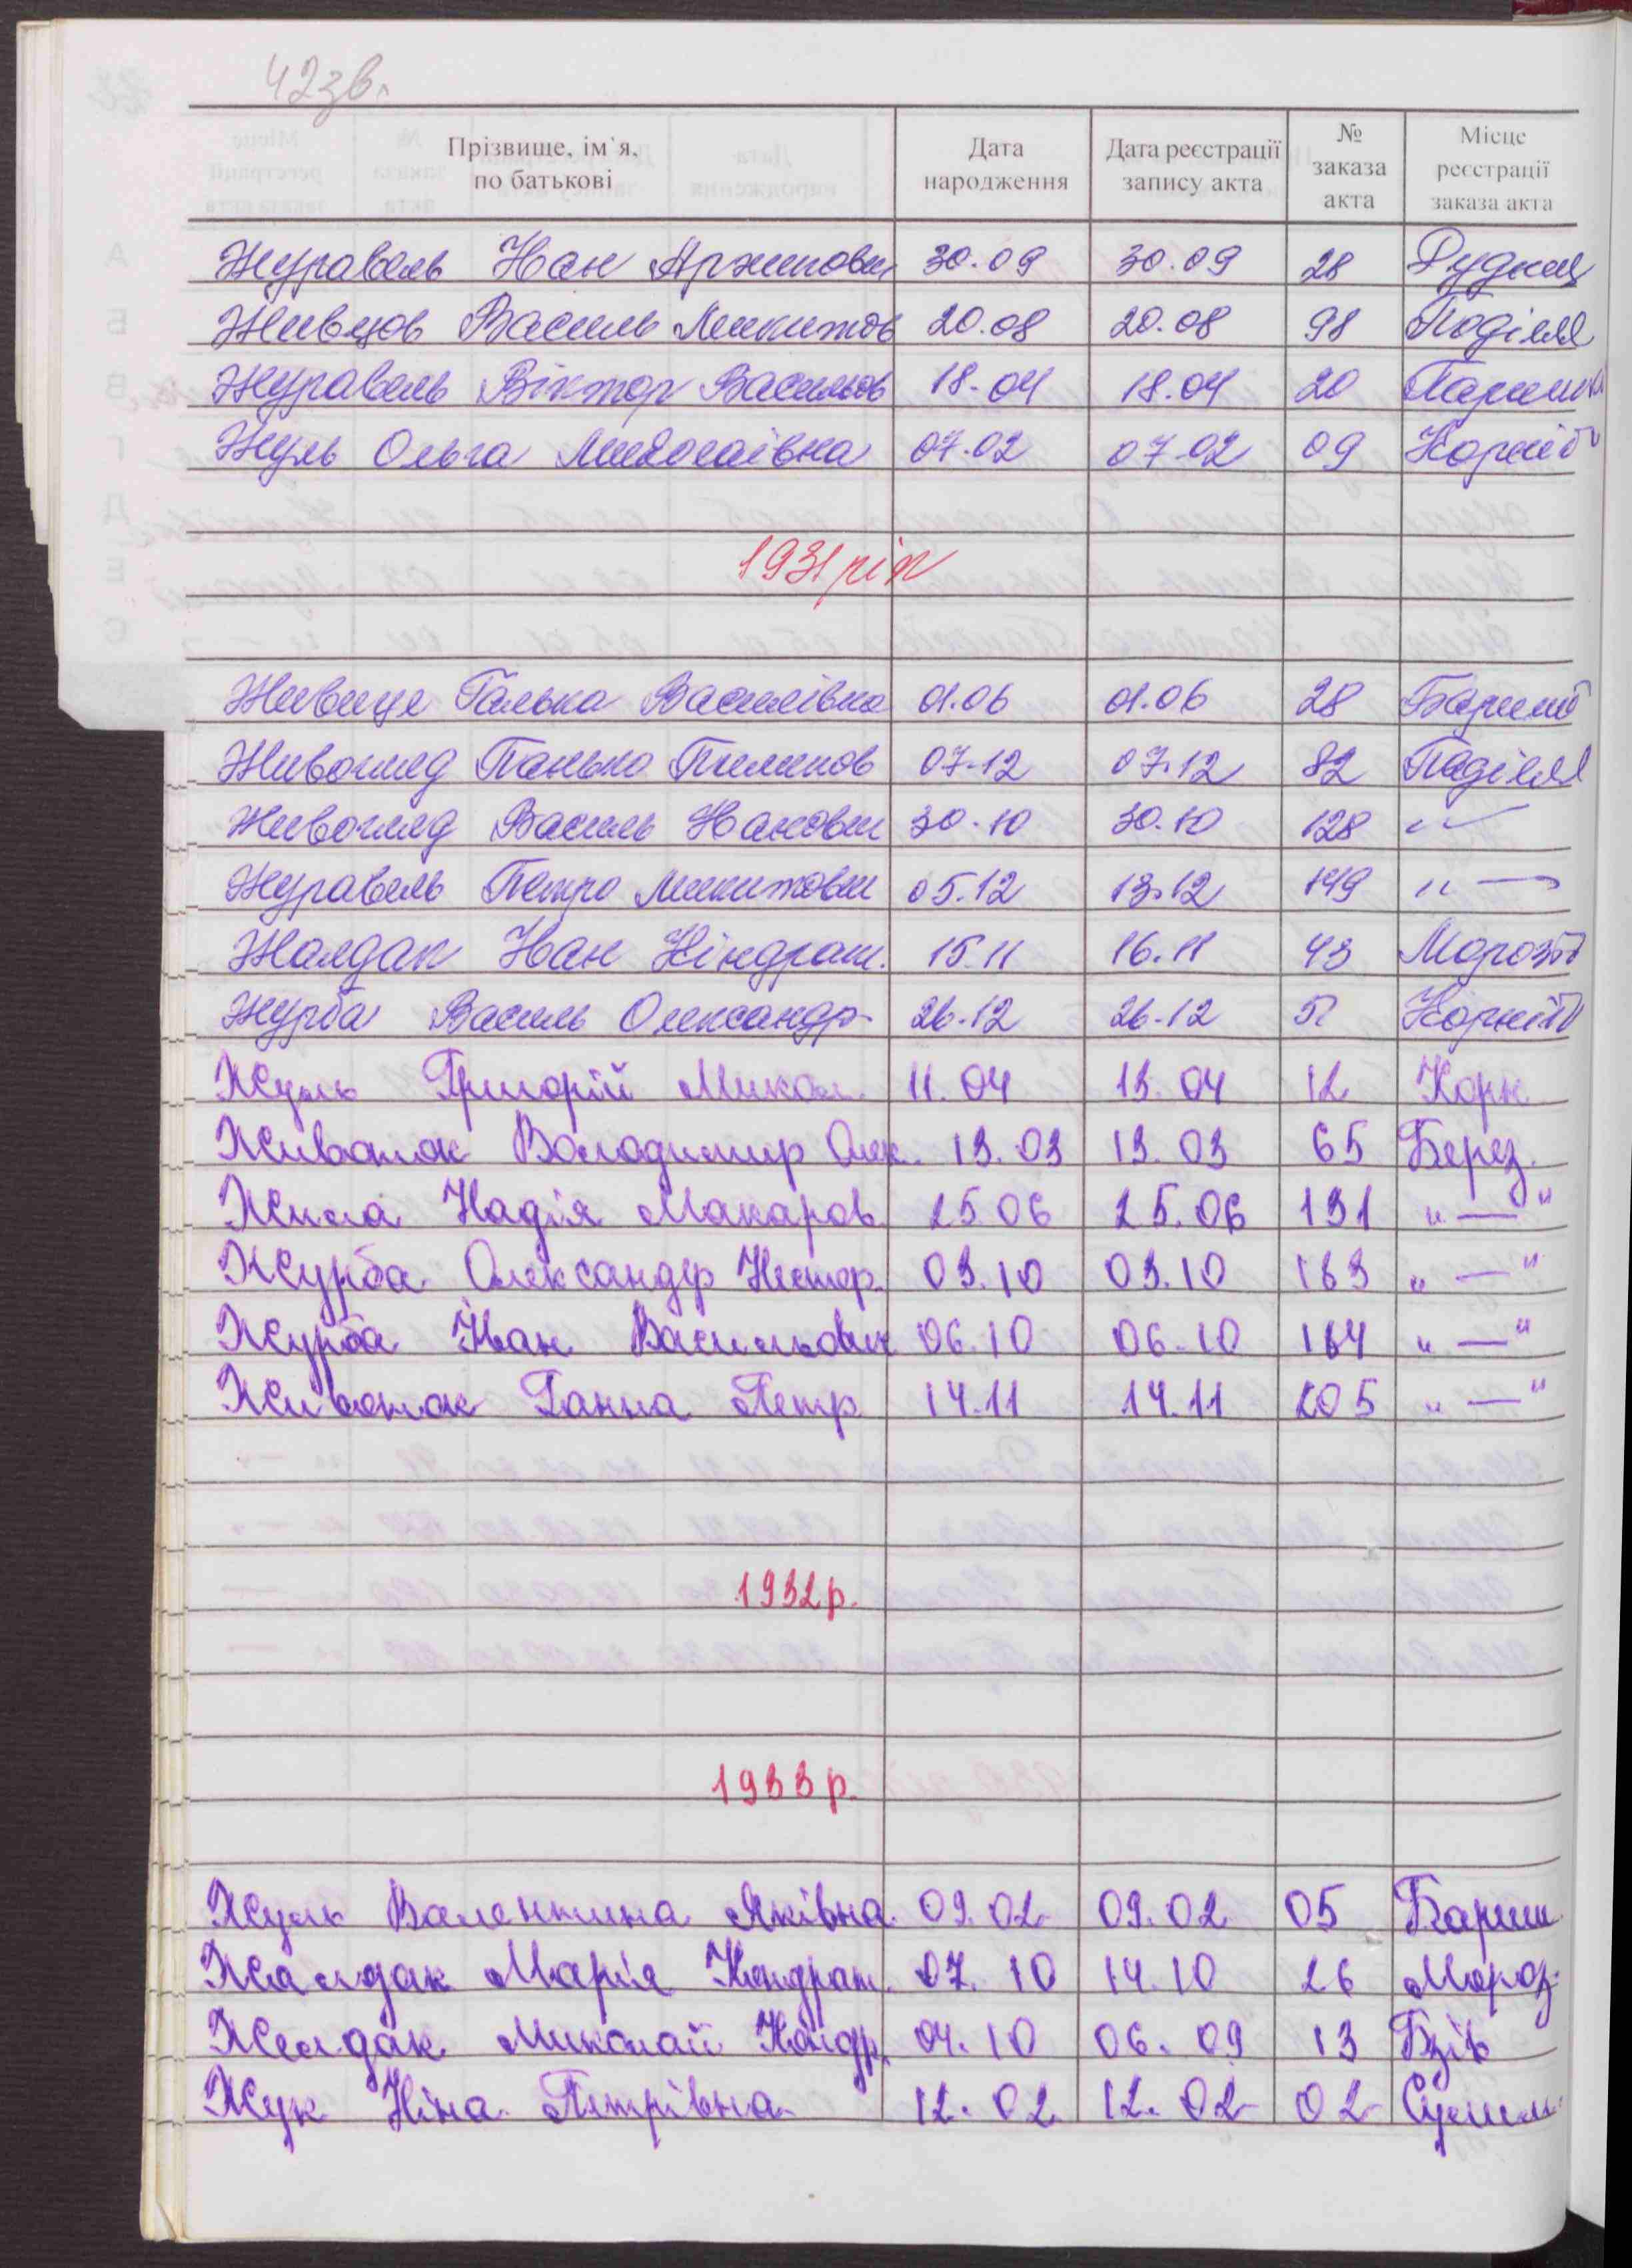 42зв.
Прізвище, ім'я, по батькові Дата народження Дата реєстрації запису акта № заказа акта Місце реєстрації заказа акта
Журавель Іван Архипович 30.09 30.09 28 Рудниц
Живцов Василь Микитов 20.08 20.08 98 Поділля
Журавель Віктор Васильов 18.04 18.04 20
Жуль Ольга Миколаївна 07.02 07.02 09 Корніїв
1931 рік
Живиця Галька Василівна 01.06 01.06 28 Баришів
Живогляд Панько Пилипов 07.12 07.12 82 Поділля
Живогляд Василь Іванович 30.10 30.10 128 "—
Журавель Петро Микитович 05.12 13.12 149 "—
Жалдак Іван Кіндрат. 15.11 16.11 43 Морозів
Журба Василь Олександр- 26.12 26.12 51 Корніїв
Жуль Григорій Микол. 11.04 13.04 12 Корн
Животок Володимир Олек. 13.03 13.03 65 Берез.
Жила Надія Макаров. 25.06 25.06 131 "—"
Журба Олександр Нестор. 03.10 03.10 183 "—"
Журба Іван Васильович 06.10 06.10 184 "—"
Животок Ганна Петр. 14.11 14.11 205 "—"
1932р.
1933р.
Жуль Валентина Яківна 09.02 09.02 05 Бариш.
Жалдак Марія Кондрат. 07.10 14.10 26 Мороз.
Желдак Миколай Кондр. 04.10 06.09 13 Бзів
Жук Ніна Петрівна 12.02 12.02 02